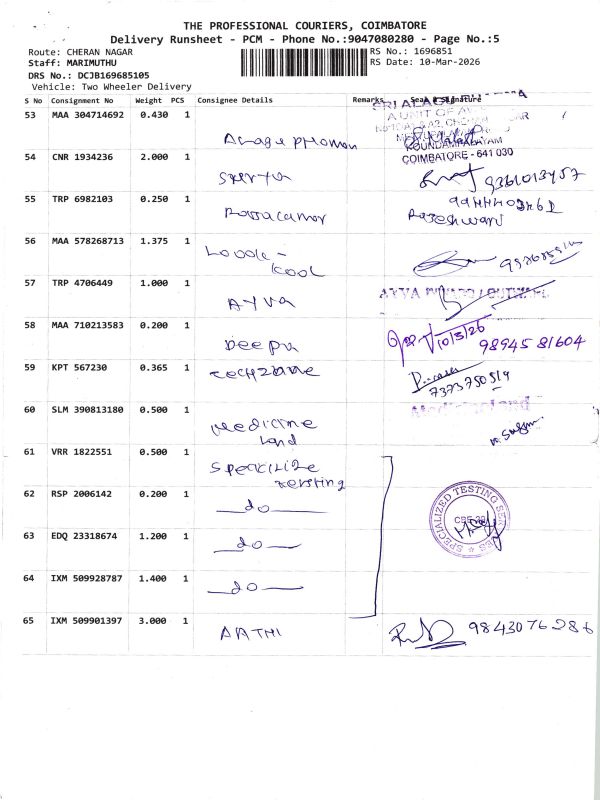 THE PROFESSIONAL COURIERS, COIMBATORE
Delivery Runsheet - PCM - Phone No.:9047080280 - Page No.:5
Route: CHERAN NAGAR
Staff: MARIMUTHU
DRS No.: DCJB169685105
Vehicle: Two Wheeler Delivery
RS No.: 1696851
RS Date: 10-Mar-2026
S No Consignment No Weight PCS Consignee Details Remarks Seal & Signature
53 MAA 304714692 0.430 1
COIMBATORE - 641 030
54 CNR 1934236 2.000 1
55 TRP 6982103 0.250 1
Rajeshwari
56 MAA 578268713 1.375 1
Kool
57 TRP 4706449 1.000 1
AYVA
AYVA
58 MAA 710213583 0.200 1
Deepa
10/3/26
98945 81604
59 KPT 567230 0.365 1
Techzone
7373750519
60 SLM 390813180 0.500 1
Medicine
Land
Medicineland
61 VRR 1822551 0.500 1
Testing
62 RSP 2006142 0.200 1
do
SPECIALIZED TESTING SERVICES
63 EDQ 23318674 1.200 1
do
64 IXM 509928787 1.400 1
do
65 IXM 509901397 3.000 1
AATHI
9843076286